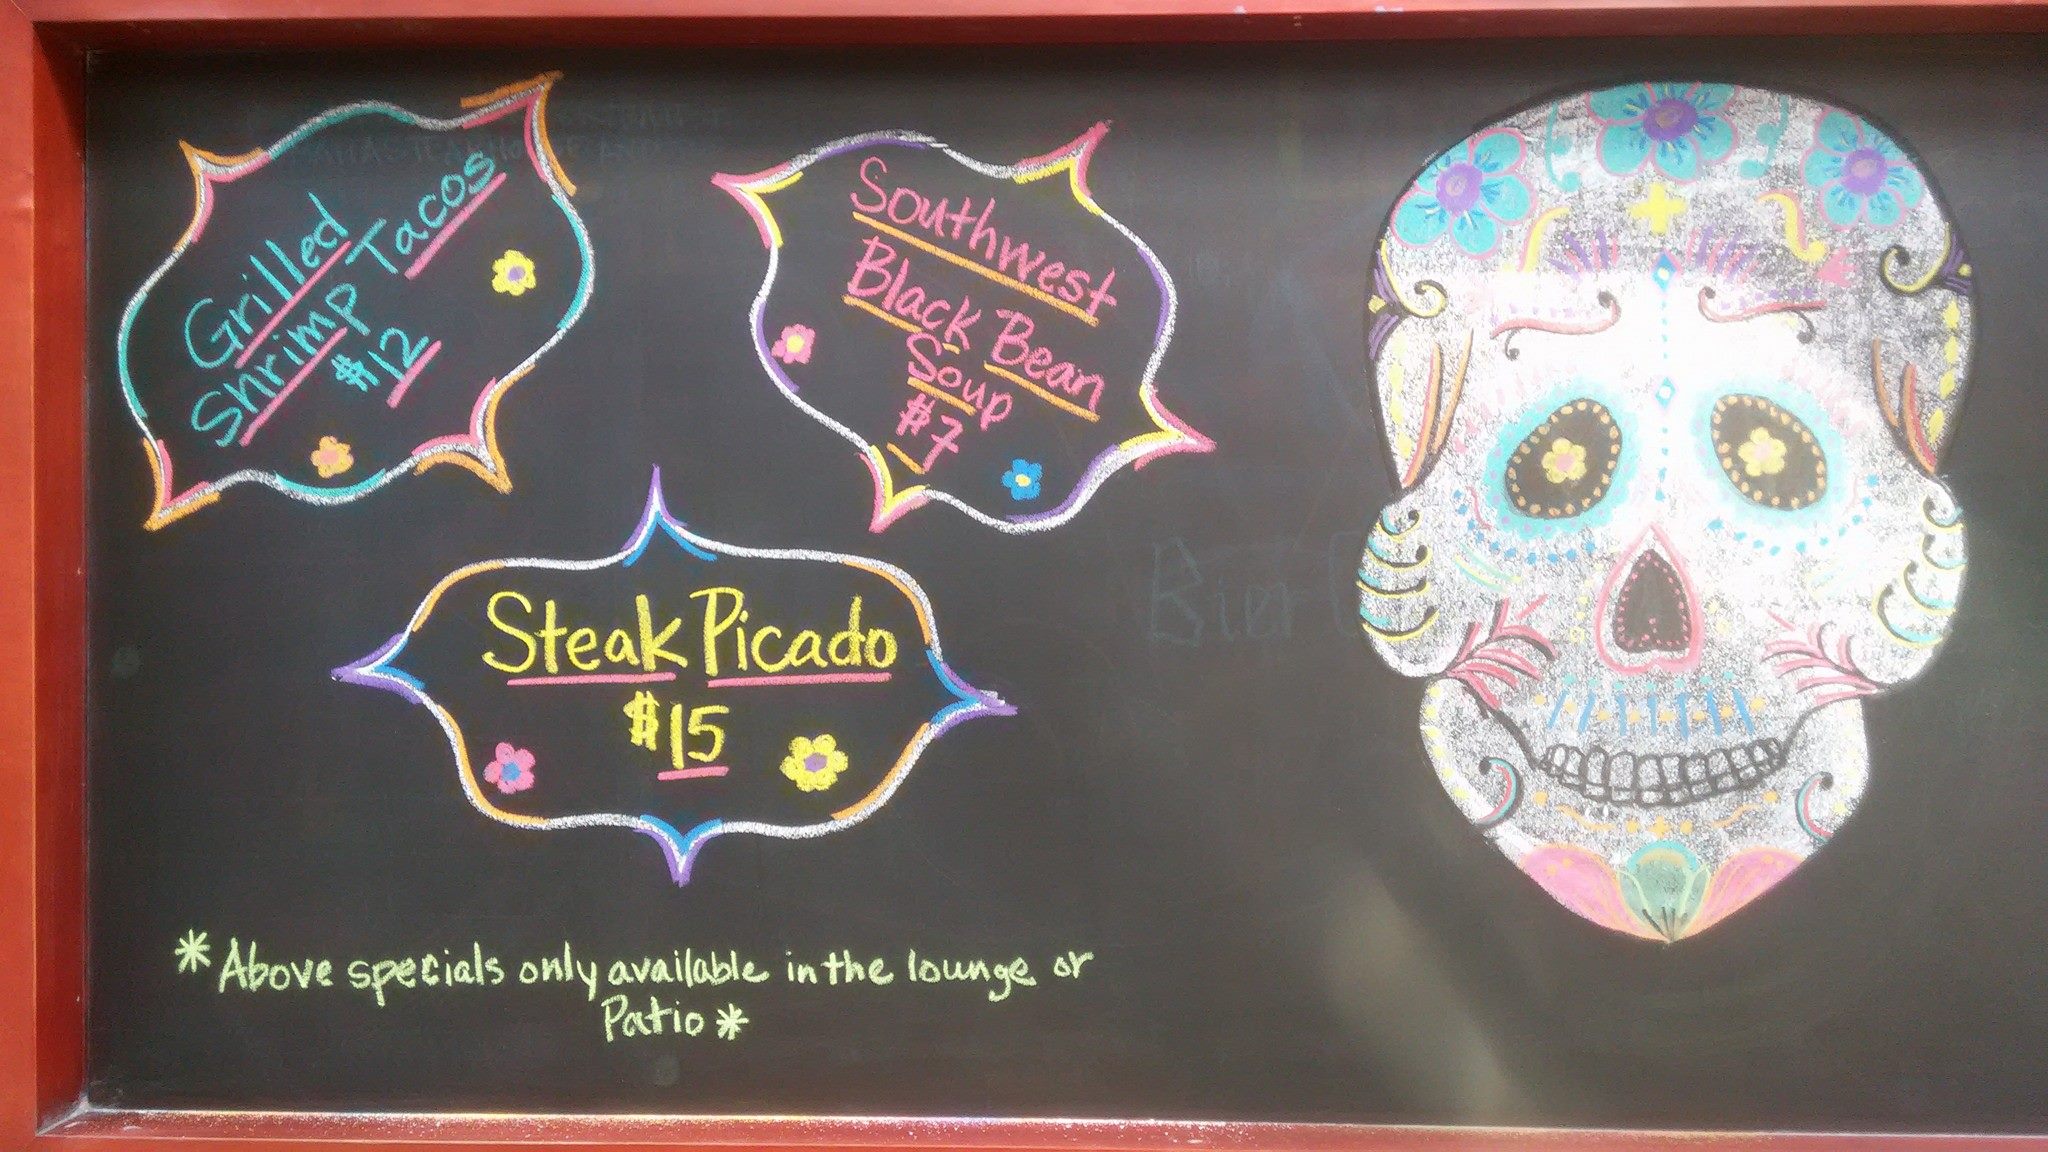 Grilled
Shrimp Tacos
$12
Southwest
Black Bean
Soup
$7
Steak Picado
$15
*Above specials only available in the lounge or
Patio*
Bier